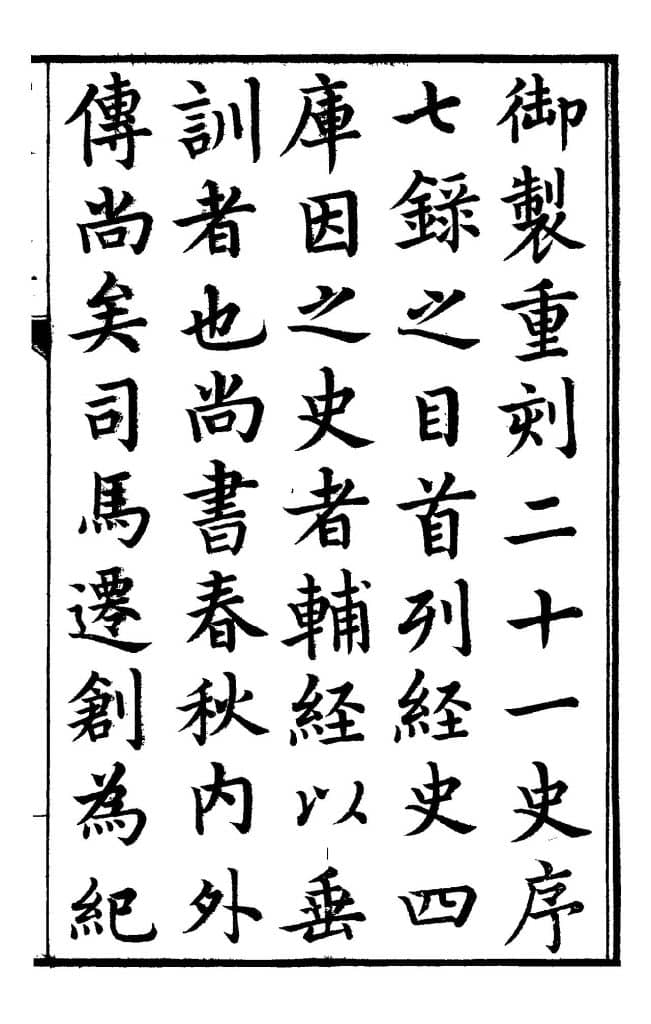 御製重刻二十一史序
七錄之目首列経史四
庫因之史者輔経以垂
訓者也尚書春秋内外
傳尚矣司馬遷創為紀